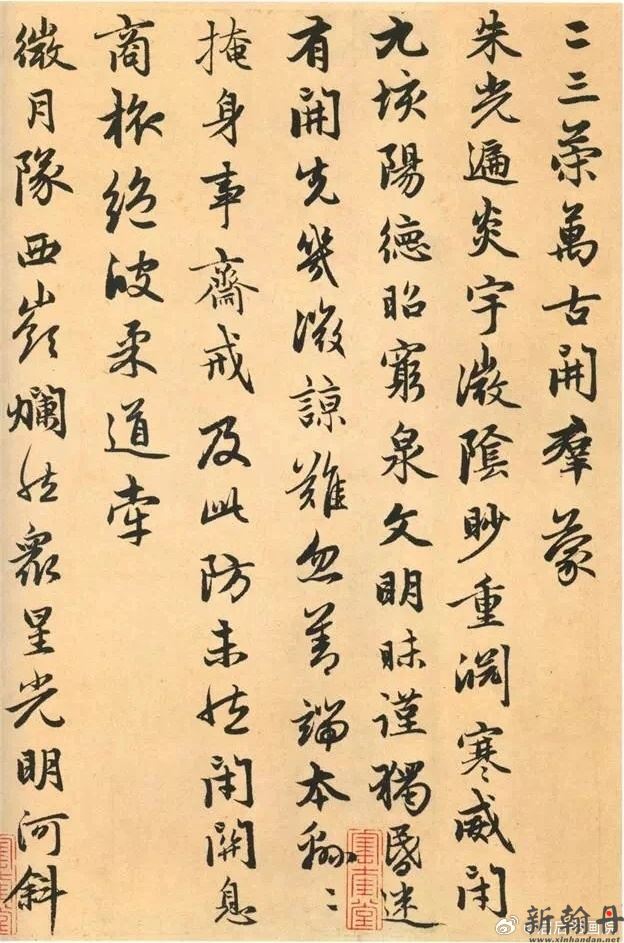 二三策萬古開羣蒙
朱光遍炎宇微陰眇重淵寒威閉
九垓陽德昭窮泉文明昧謹獨昏迷
有開先幾微諒難忽善端本綿〻
掩身事齋戒及此防未然閉關息
商旅絕彼柔道牽
微月隊西嶺爛然衆星光明河斜
新翰丹
www.xinhandan.net